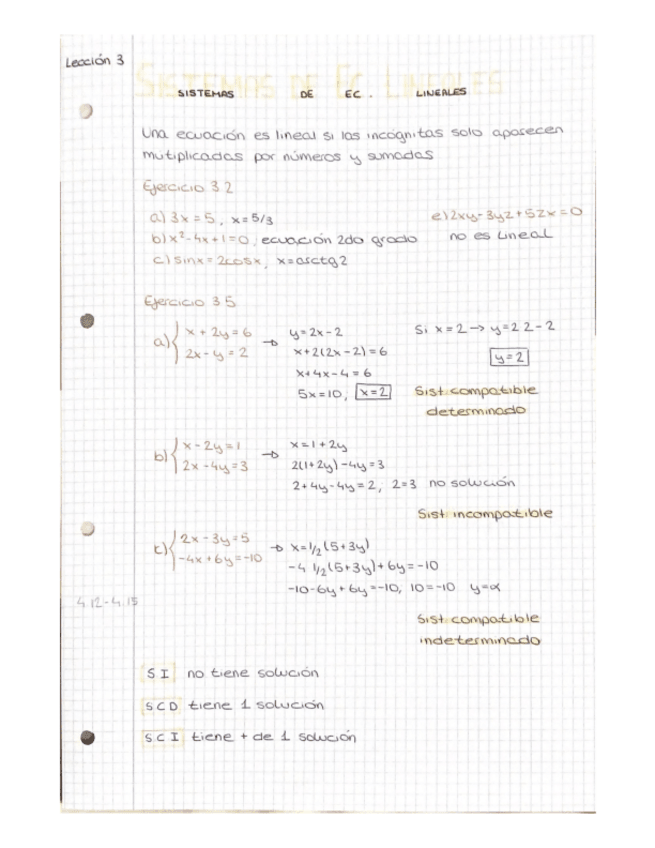 Lección 3
SISTEMAS DE EC. LINEALES
SISTEMAS DE EC. LINEALES
Una ecuación es lineal si las incógnitas solo aparecen
mutiplicadas por números y sumadas
Ejercicio 3.2
a) 3x = 5, x = 5/3
e) 2xy - 3yz + 5zx = 0
b) x² - 4x + 1 = 0, ecuación 2do grado
no es lineal
c) sinx = 2cosx, x = arctg 2
Ejercicio 3.5
a) { x + 2y = 6
2x - y = 2
→ y = 2x - 2
x + 2(2x - 2) = 6
x + 4x - 4 = 6
5x = 10, x = 2
Si x = 2 → y = 2·2 - 2
y = 2
Sist compatible
determinado
b) { x - 2y = 1
2x - 4y = 3
→ x = 1 + 2y
2(1 + 2y) - 4y = 3
2 + 4y - 4y = 2, 2 = 3 no solución
Sist incompatible
c) { 2x - 3y = 5
-4x + 6y = -10
→ x = 1/2 (5 + 3y)
-4 1/2 (5 + 3y) + 6y = -10
-10 - 6y + 6y = -10, 10 = -10 y = α
4.12 - 4.15
Sist compatible
indeterminado
S I no tiene solución
S C D tiene 1 solución
S C I tiene + de 1 solución